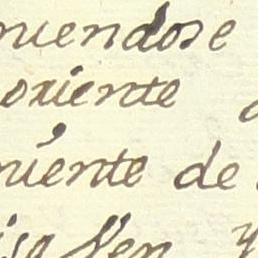 nuendose
oriente
niente de
Ven y